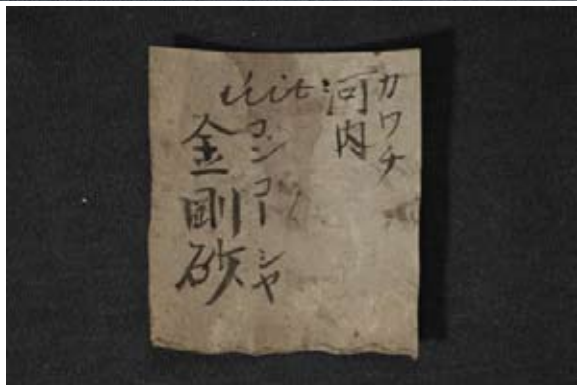 カワチ
河内
uit:
コンコーシヤ
金剛砂